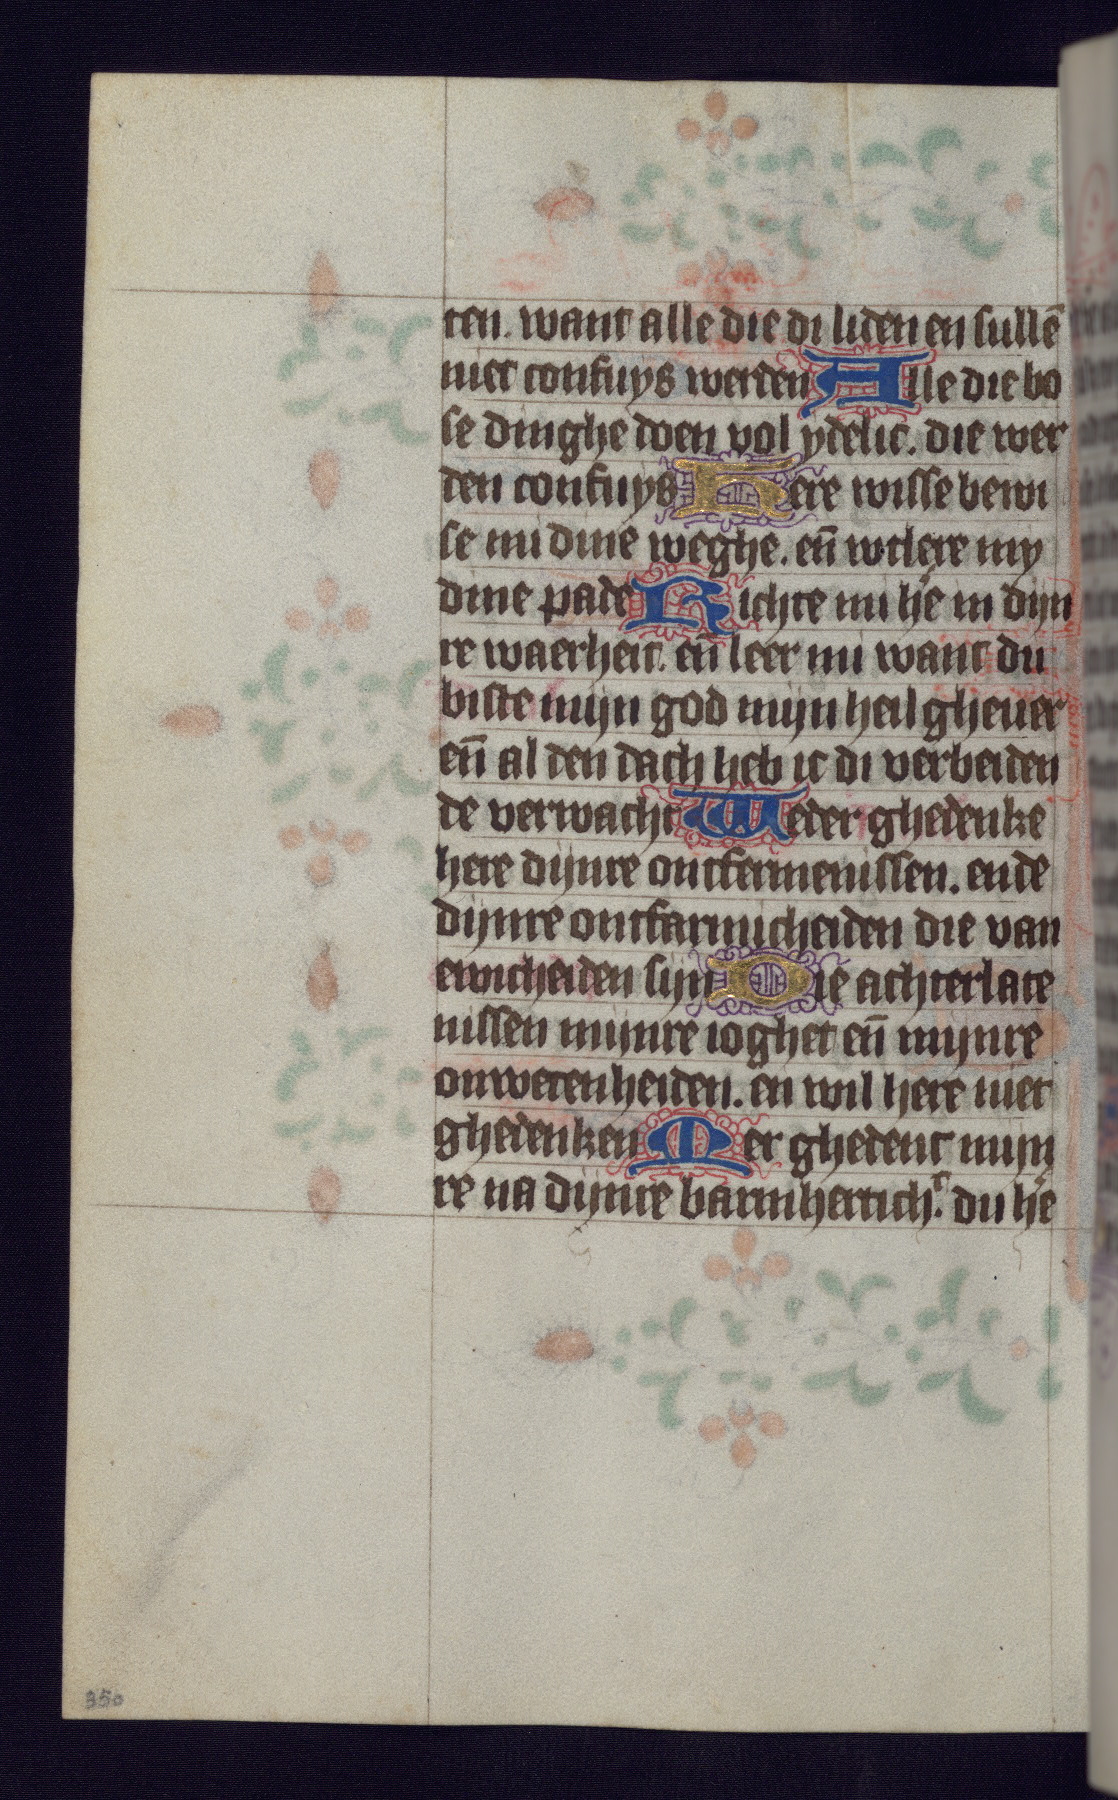 ten. want alle die di liden en sullē
niet confuys werden Alle die bo
se dinghe doen vol ydelic. die wer
den confuys Here wisse bewi
se mi dine weghe. en̄ wtlere my
dine pade Richte mi hē in dijn
re waerheit. en̄ leer mi want du
biste mijn god mijn heil gheuer
en̄ al den dach heb ic di verbeiden
de verwacht Weder ghedenke
here dijnre ontfermenissen. ende
dijnre ontfarmicheiden die van
ewicheiden sijn Die achterlate
nissen mijnre ioghet en̄ mynre
onwetenheiden. en wil here niet
ghedenken Mer ghedenc mijn
re na dijnre barmherticht. du hē
350